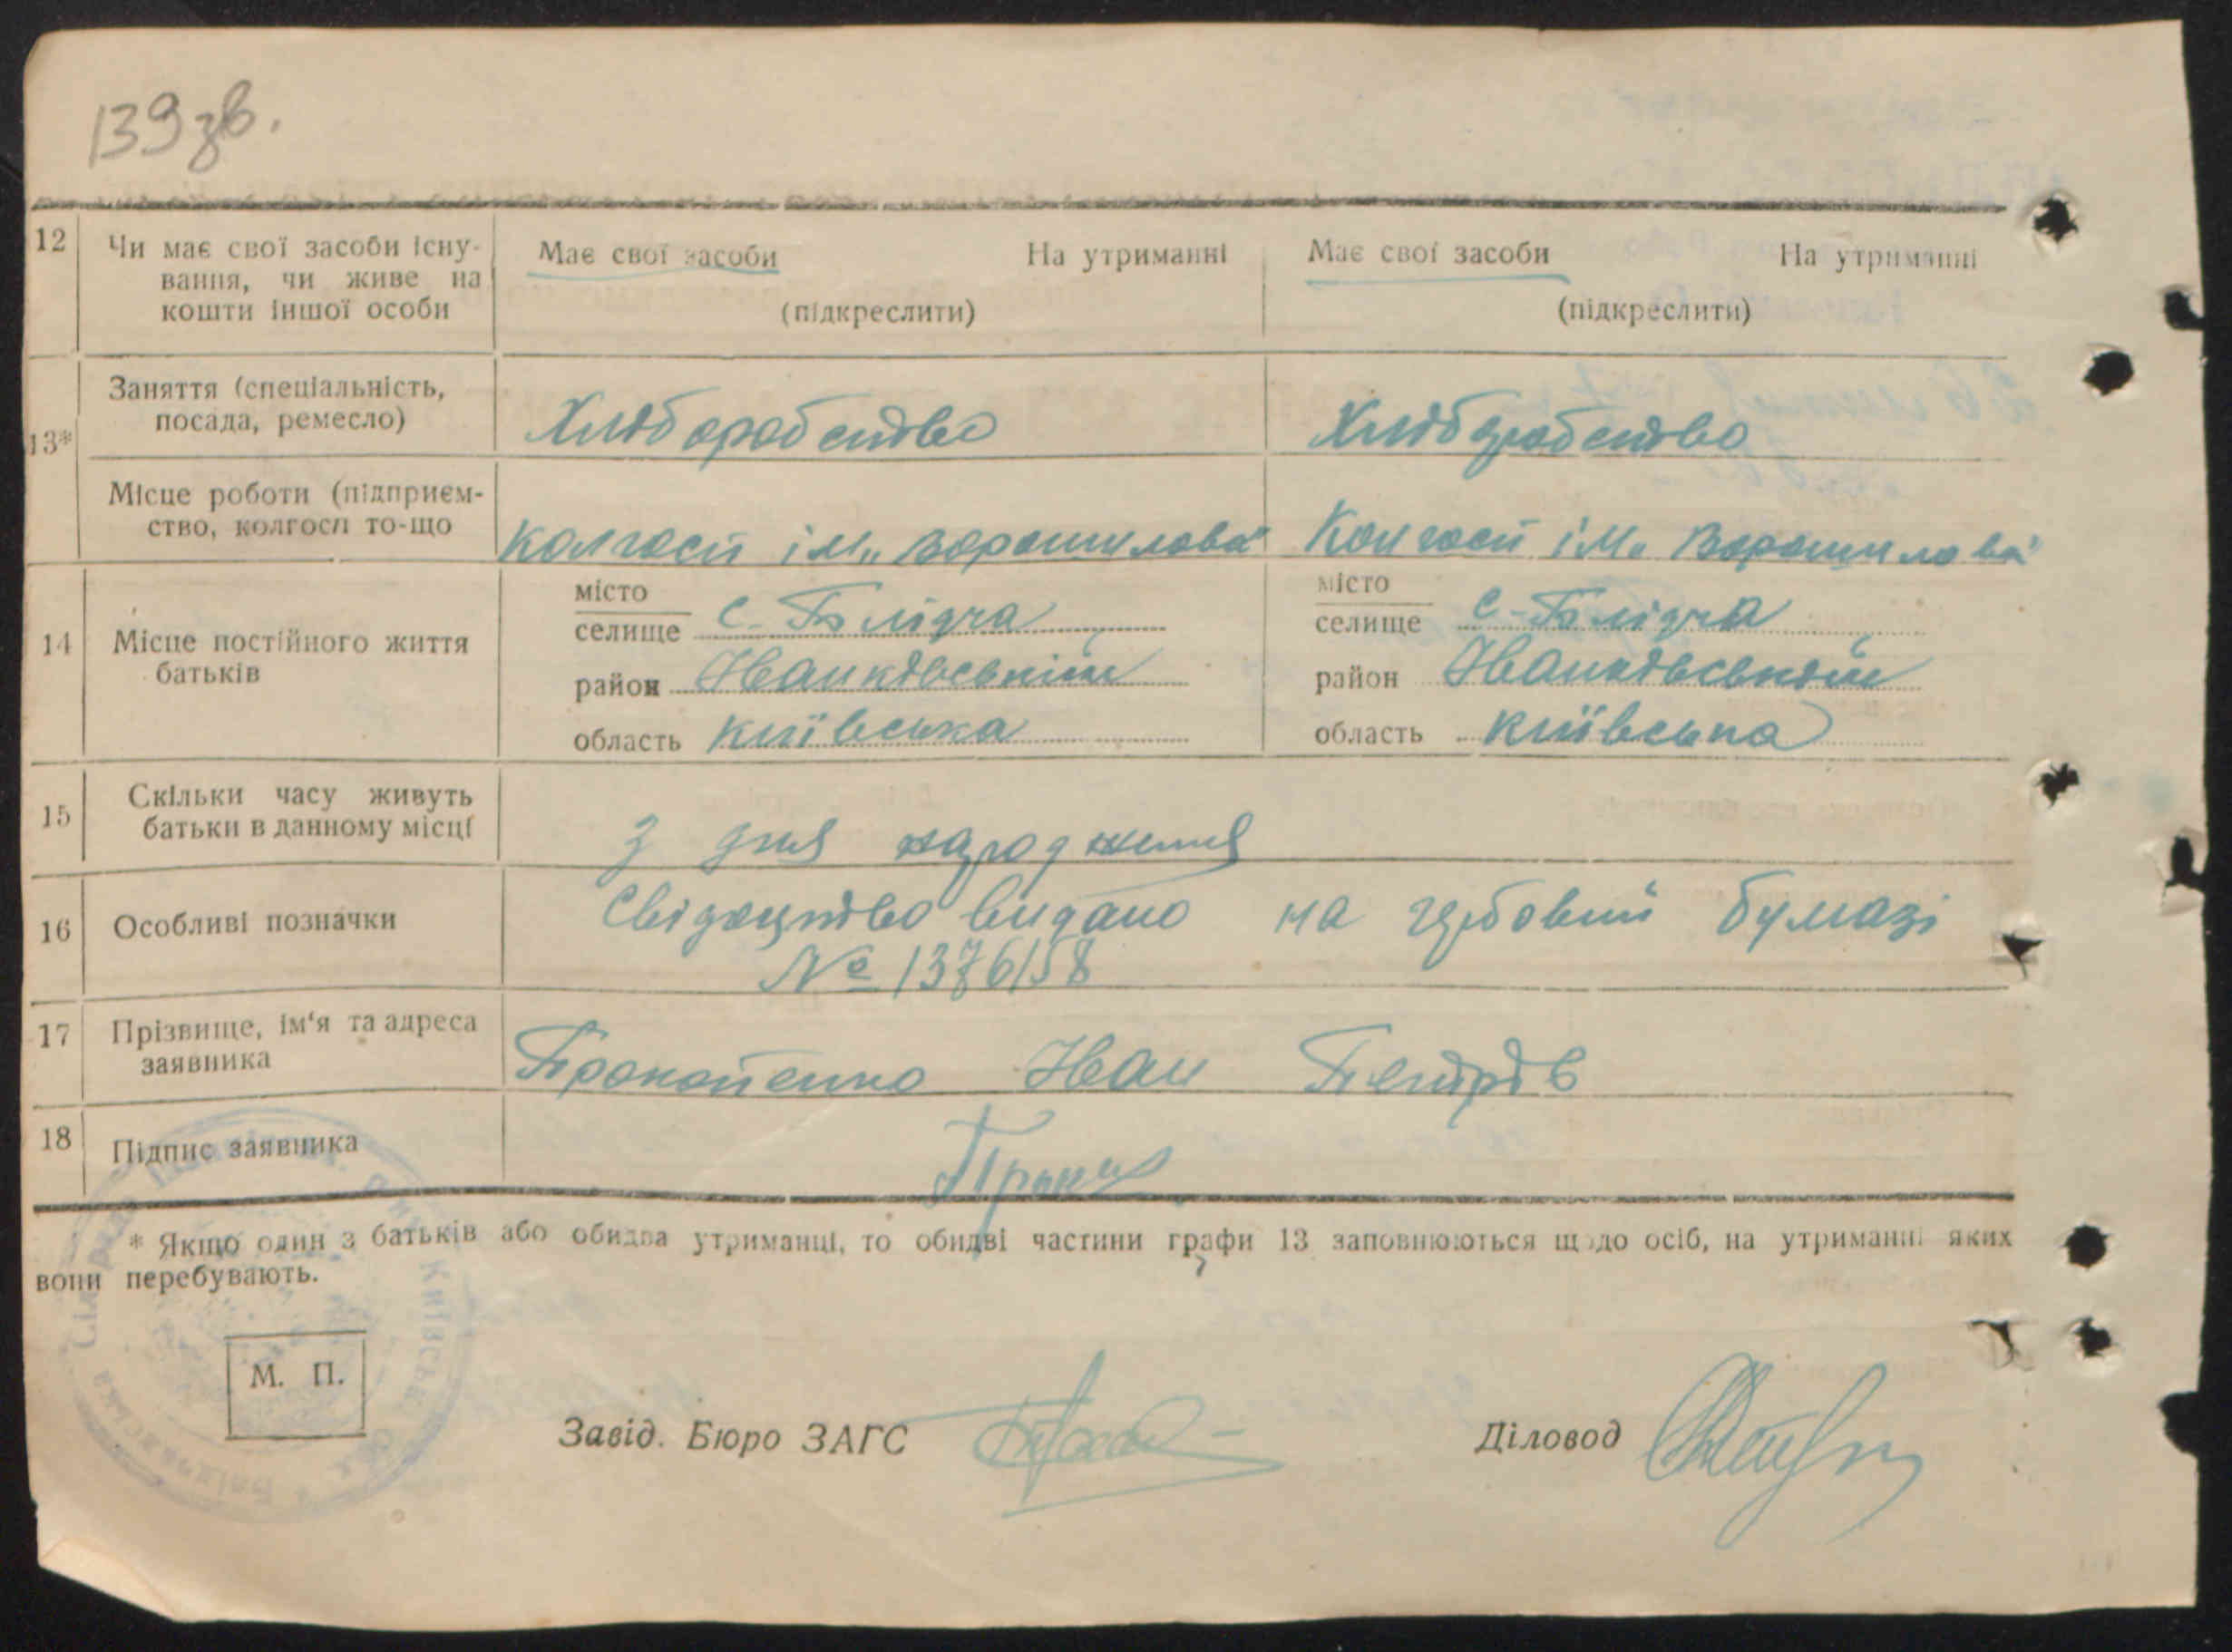 139 зв.
12 Чи має свої засоби існу-
вання, чи живе на
кошти іншої особи
Має свої засоби На утриманні
(підкреслити)
Має свої засоби На утриманні
(підкреслити)
13*
Заняття (спеціальність,
посада, ремесло)
Хліборобство
Хліборобство
Місце роботи (підприєм-
ство, колгосп то-що
колгосп ім. Ворошилова
Колгосп ім. Ворошилова
14 Місце постійного життя
батьків
місто
селище с. Блідча
район Іванківський
область київська
місто
селище с. Блідча
район Іванківський
область київська
15 Скільки часу живуть
батьки в данному місці
з дня народження
16 Особливі позначки
Свідоцтво видано на гербовий бумазі
№ 1376158
17 Прізвище, ім'я та адреса
заявника
Прокопенко Іван Петрів
18 Підпис заявника
* Якщо один з батьків або обидва утриманці, то обидві частини графи 13 заповнюються щодо осіб, на утриманні яких
вони перебувають.
М. П.
Завід. Бюро ЗАГС
Діловод